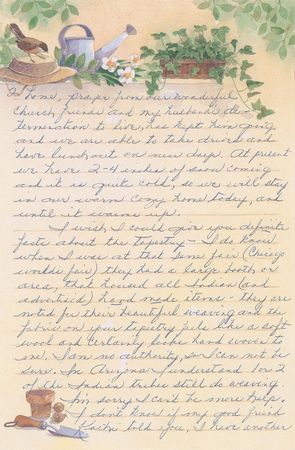 home, prayer from our wonderful
Church friends and my husbands de-
termination to live, has kept him going
and we are able to take drives and
have lunch out on nice days. At present
we have 2-4 inches of snow coming
and it is quite cold, so we will stay
in our warm cozy home today, and
until it warms up.
I wish I could give you definite
facts about the tapestry - I do know
when I was at that same fair (Chicago
worlds fair) they had a large booth or
area, that housed all Indian (and
advertised) hand made items - they are
noted for their beautiful weaving and the
fabric on your tapestry feels like a soft
wool and certainly looks hand woven to
me. I am no authority, so I can not be
sure. In Arizona I understand 1 or 2
of the Indian tribes still do weaving.
I'm sorry I can't be more help.
I don't know if my good friend
told you, I have another